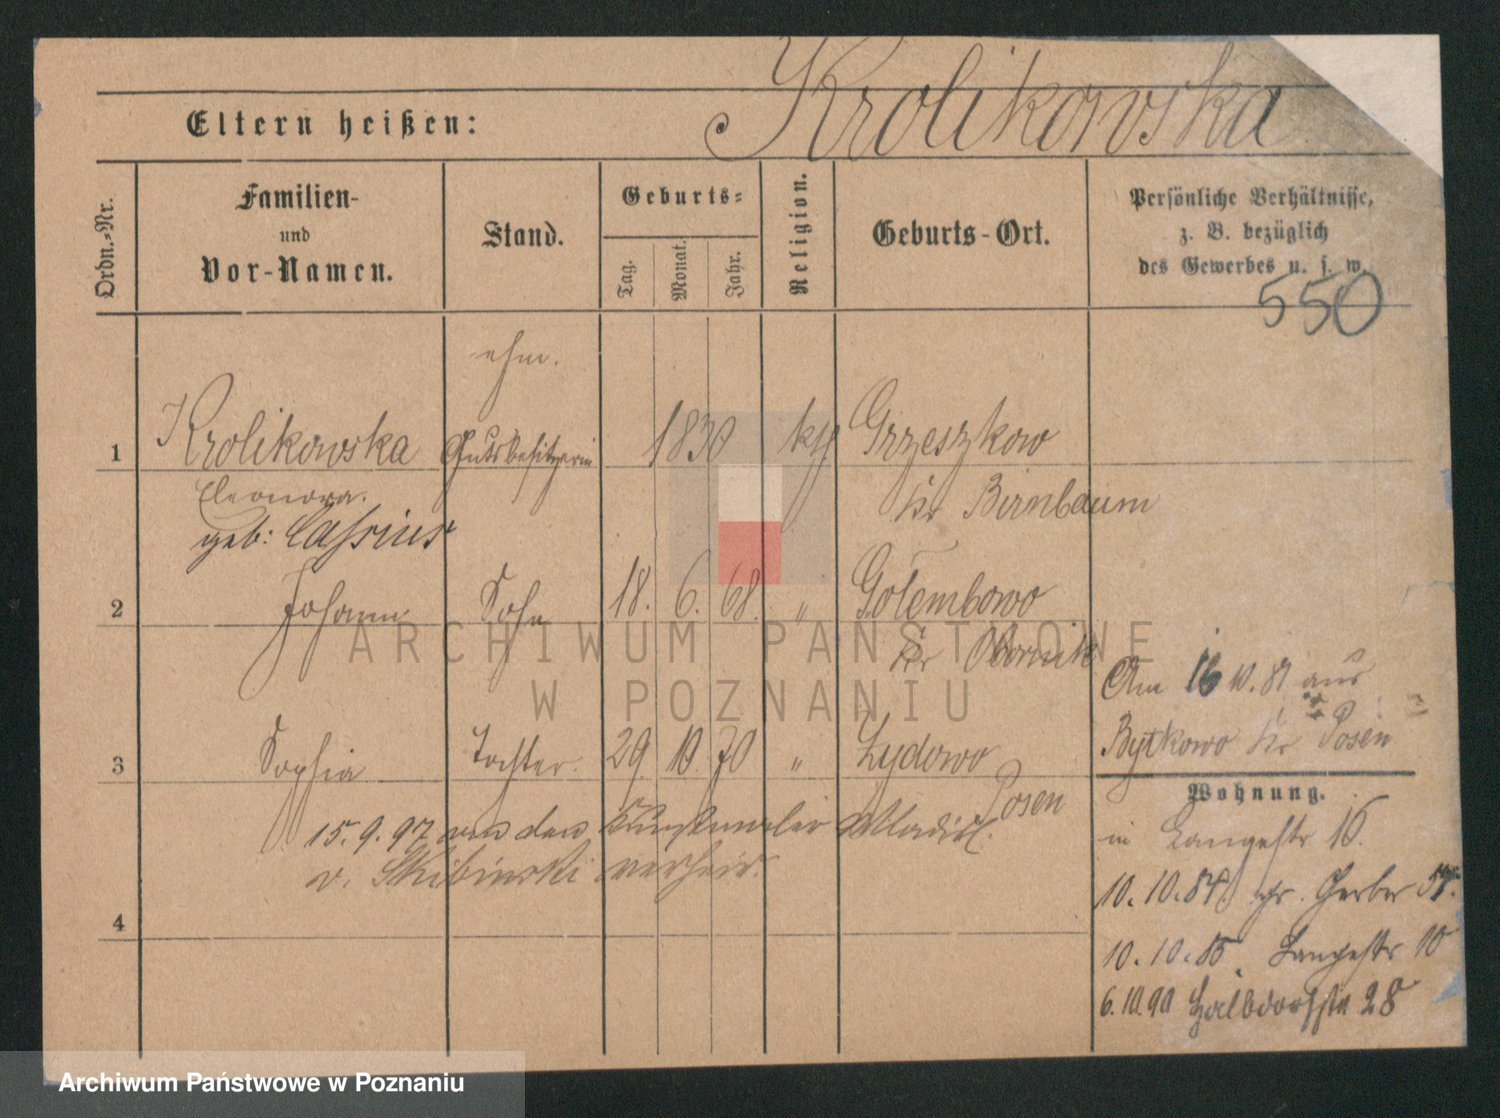 Krolikowska
Eltern heißen:
Ordn.-Nr.
Familien-
und
Vor-Namen.
Stand.
Geburts-
Tag.
Monat.
Jahr.
Religion.
Geburts-Ort.
Persönliche Verhältnisse,
z. B. bezüglich
des Gewerbes u. s. w.
550
ehm.
1 Krolikowska Gutsbesitzerin 1830 kth Grzeszkow
Eleonora. Kr Birnbaum
geb: Cassius
2 Johann Sohn 18. 6. 68. " Golembowo
Kr Obornik
Am 16 10. 81 aus
Bytkowo Kr Posen
3 Sophia Tochter. 29. 10. 70 " Zydowo
Posen
15.9.97 von den Kunstmaler Wladisl.
v. Skibinski verheir.
4
Wohnung.
in Langestr 16.
10.10.84 gr. Gerber
10.10.85. Langestr 10
6.10.90 Halbdorfstr 28
ARCHIWUM PAŃSTWOWE
W POZNANIU
Archiwum Państwowe w Poznaniu